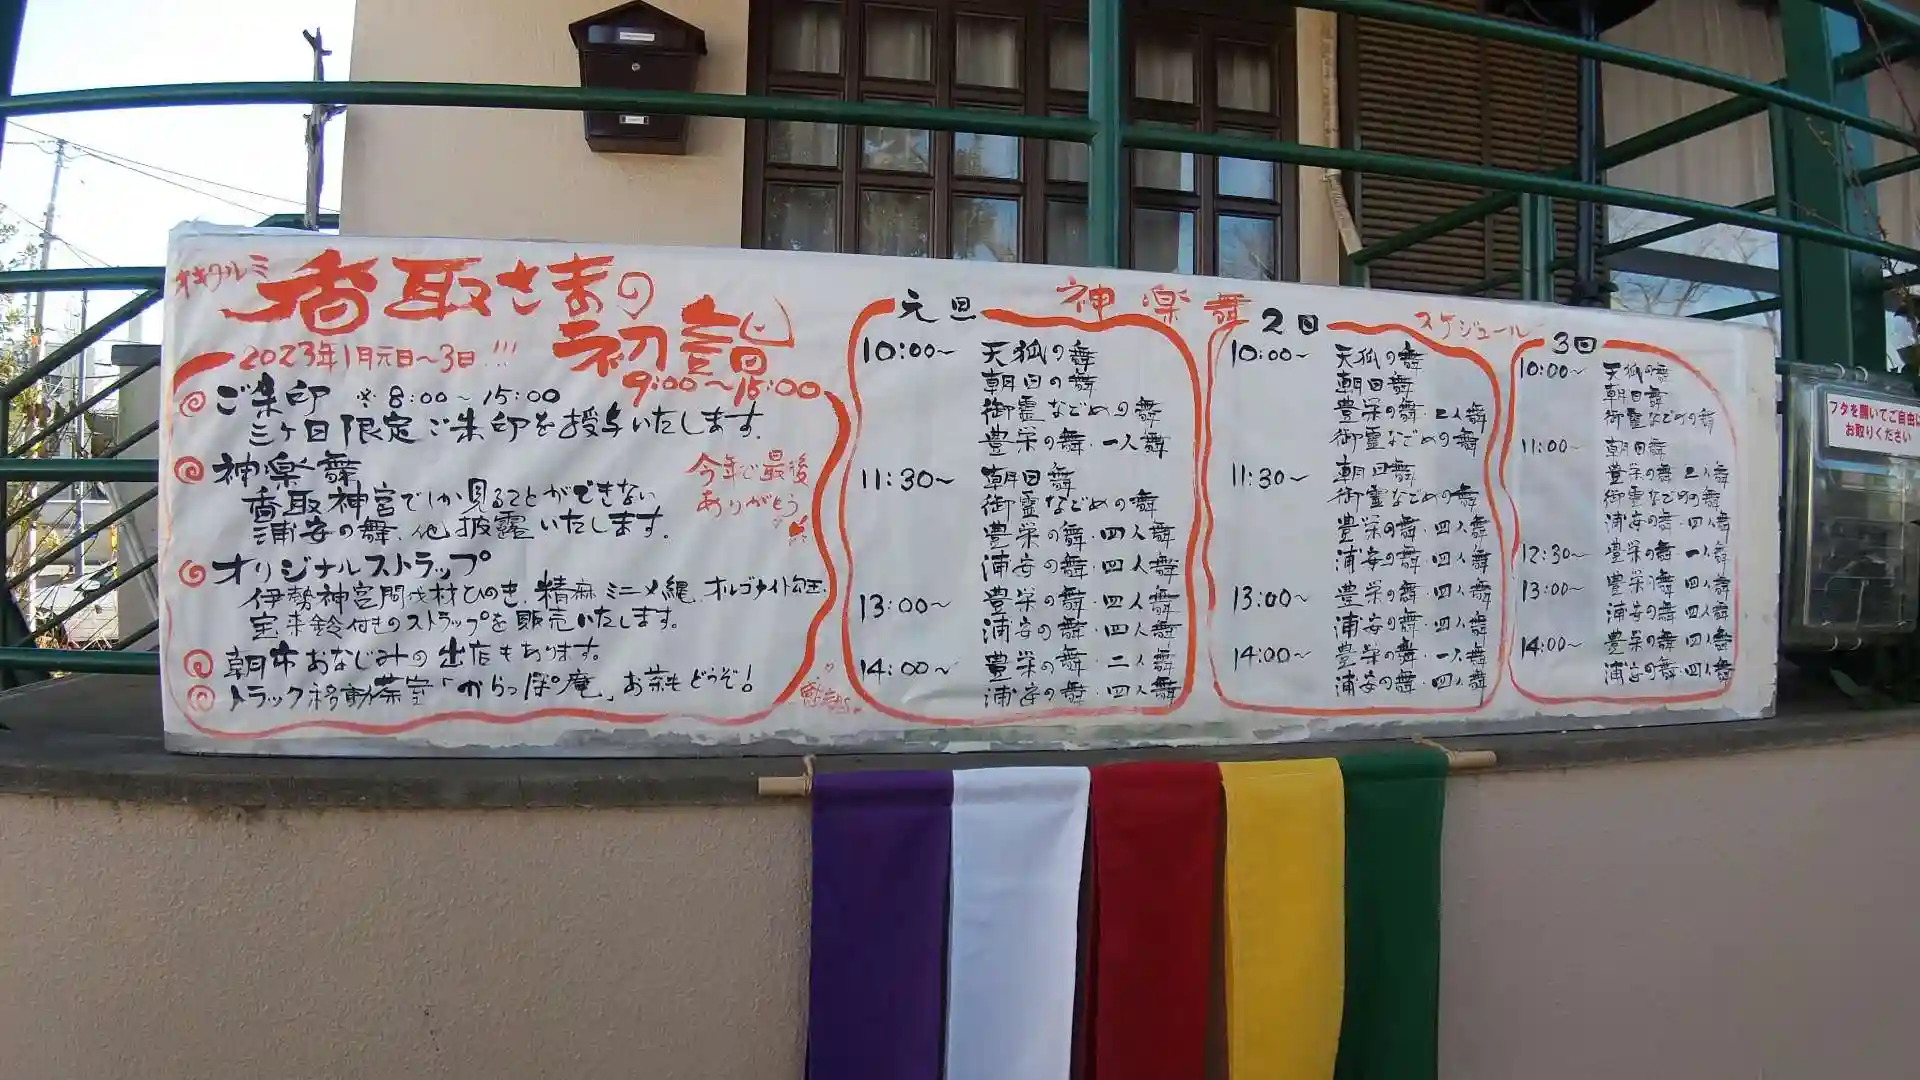 オキクルミ
香取さまの
初詣
2023年1月元日〜3日!!!
9:00〜15:00
ご朱印 ※8:00〜15:00
三ヶ日限定ご朱印を授与いたします。
神楽舞
香取神宮でしか見ることができない
浦安の舞、他披露いたします。
今年で最後
ありがとう
オリジナルストラップ
伊勢神宮間伐材ひのき、精麻ミニ〆縄、オルゴナイト勾玉、
宝来鈴付きのストラップを販売いたします。
朝市おなじみの出店もあります。
トラック移動茶室「からっぽ庵」お茶もどうぞ!
神楽舞 スケジュール
元旦
10:00〜 天狐の舞
朝日の舞
御霊なごめの舞
豊栄の舞・一人舞
11:30〜 朝日舞
御霊なごめの舞
豊栄の舞・四人舞
浦安の舞・四人舞
13:00〜 豊栄の舞・四人舞
浦安の舞・四人舞
14:00〜 豊栄の舞・二人舞
浦安の舞・四人舞
2日
10:00〜 天狐の舞
朝日舞
豊栄の舞・二人舞
御霊なごめの舞
11:30〜 朝日舞
御霊なごめの舞
豊栄の舞・四人舞
浦安の舞・四人舞
13:00〜 豊栄の舞・四人舞
浦安の舞・四人舞
14:00〜 豊栄の舞・一人舞
浦安の舞・四人舞
3日
10:00〜 天狐の舞
朝日舞
御霊なごめの舞
11:00〜 朝日舞
豊栄の舞・二人舞
御霊なごめの舞
浦安の舞・四人舞
12:30〜 豊栄の舞・一人舞
13:00〜 豊栄の舞・四人舞
浦安の舞・四人舞
14:00〜 豊栄の舞・四人舞
浦安の舞・四人舞
フタを開いてご自由に
お取りください